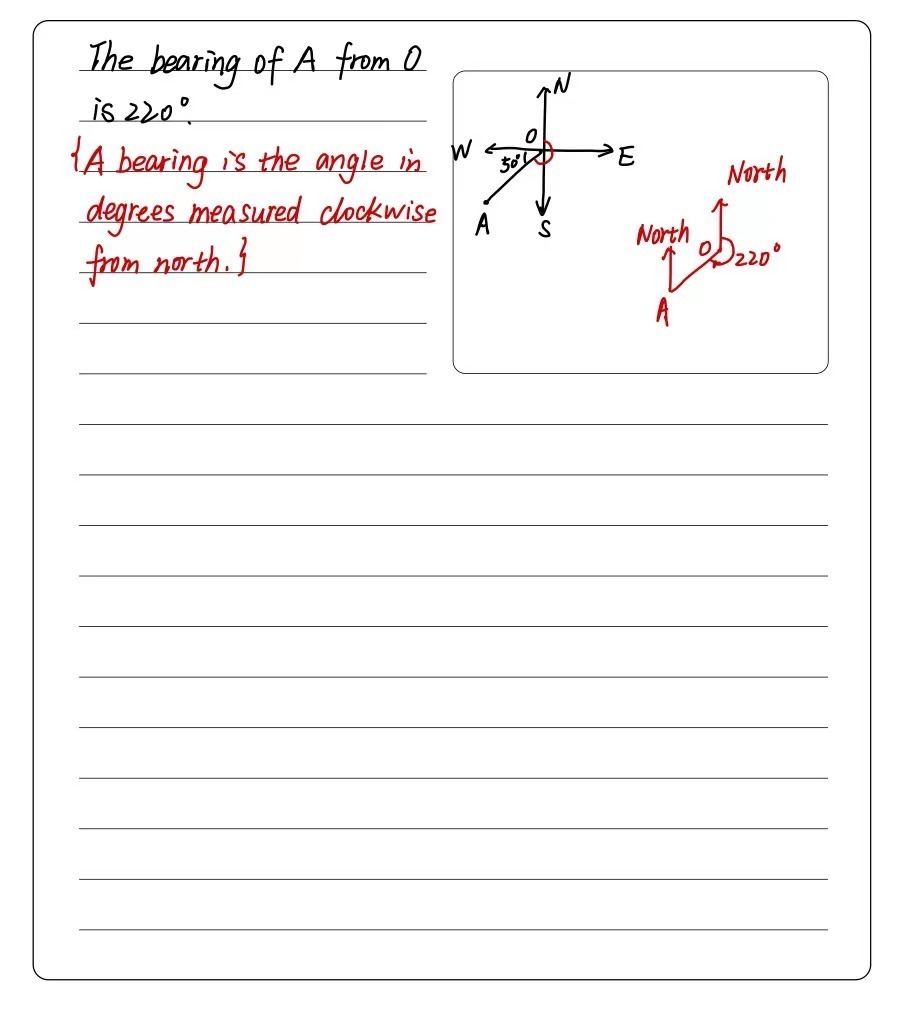 The bearing of A from O
is 220°.
{A bearing is the angle in
degrees measured clockwise
from north.}
N
O
W
50°
E
A
S
North
North
O
220°
A